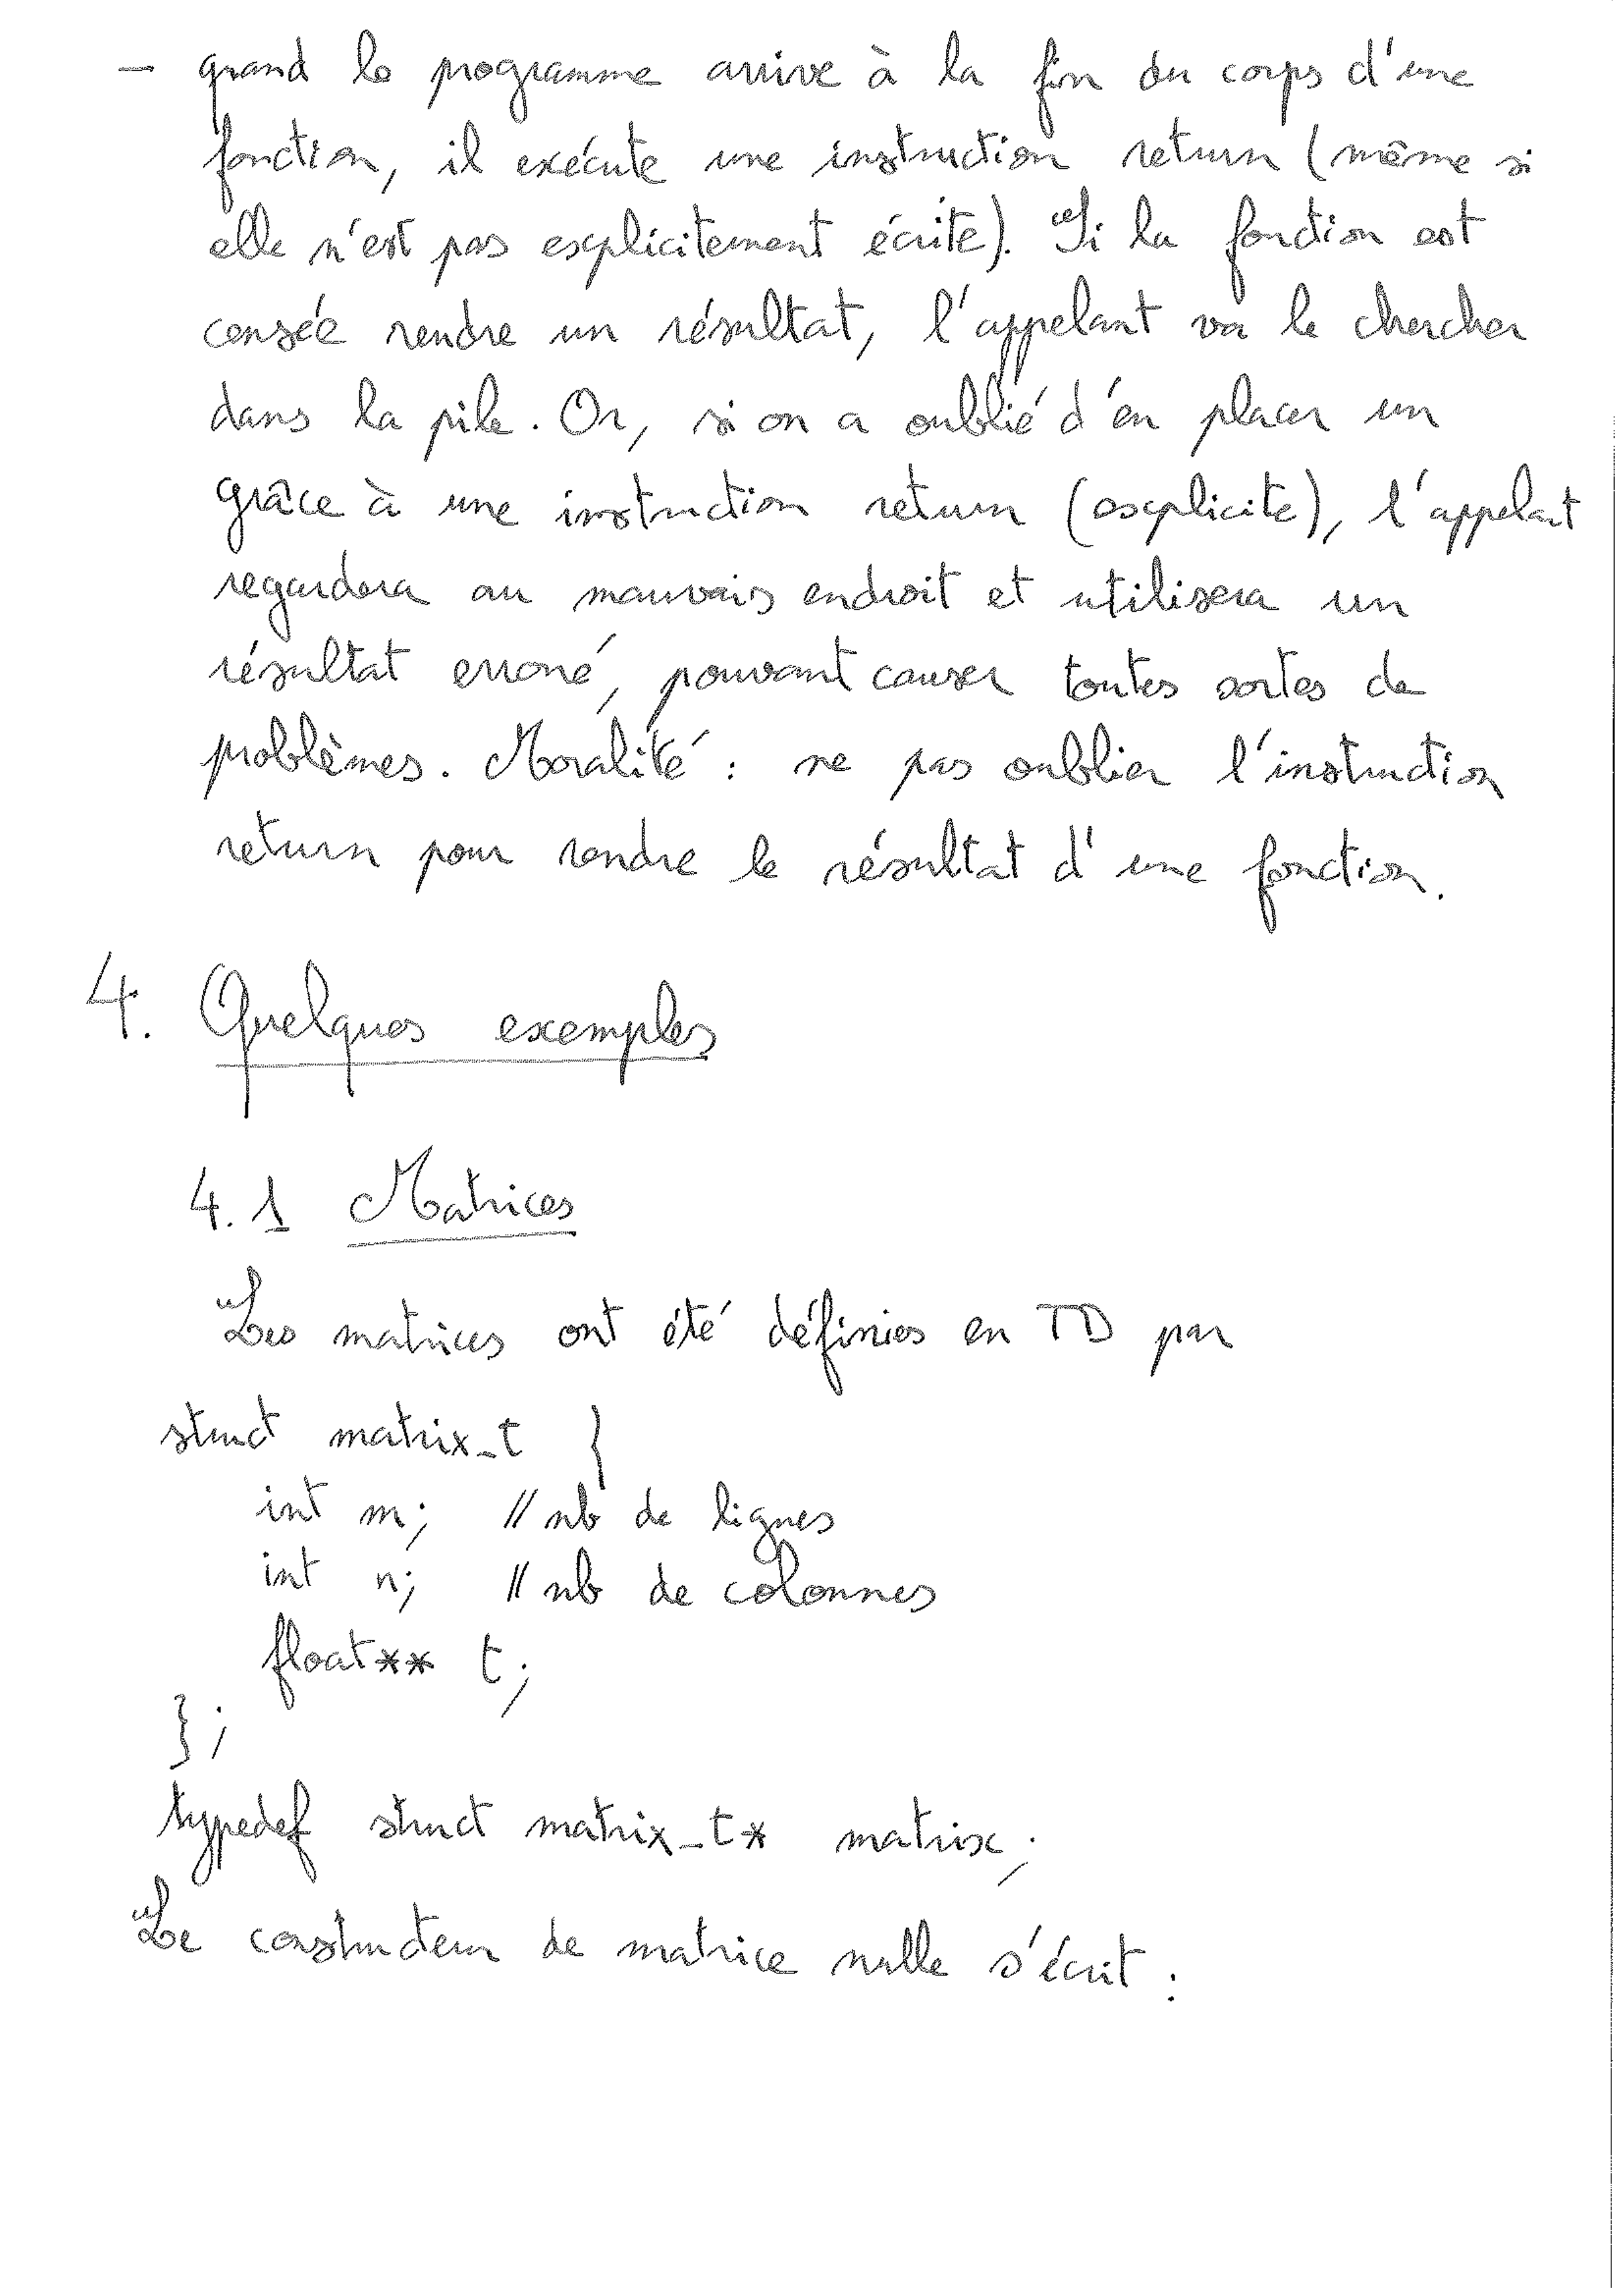 - quand le programme arrive à la fin du corps d'une
fonction, il exécute une instruction return (même si
elle n'est pas explicitement écrite). Si la fonction est
censée rendre un résultat, l'appelant va le chercher
dans la pile. Or, si on a oublié d'en placer un
grâce à une instruction return (explicite), l'appelant
regardera au mauvais endroit et utilisera un
résultat erroné, pouvant causer toutes sortes de
problèmes. Moralité : ne pas oublier l'instruction
return pour rendre le résultat d'une fonction.
4. Quelques exemples
4.1 Matrices
Les matrices ont été définies en TD par
struct matrix_t {
int m; // nb de lignes
int n; // nb de colonnes
float** t;
};
typedef struct matrix_t* matrix;
Le constructeur de matrice nulle s'écrit :